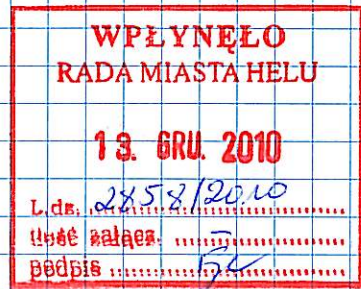 WPŁYNĘŁO
RADA MIASTA HELU
13. GRU. 2010
L.dz. 2858/2010
ilość załącz. –
podpis